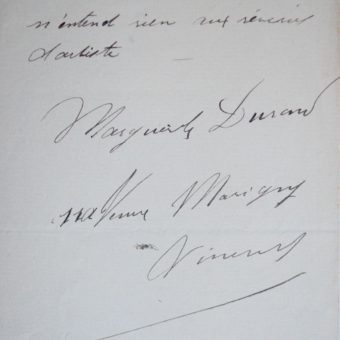 n'entend rien aux rêveries
d'artiste —
Marguerite Durand
11 avenue Marigny
Vincennes